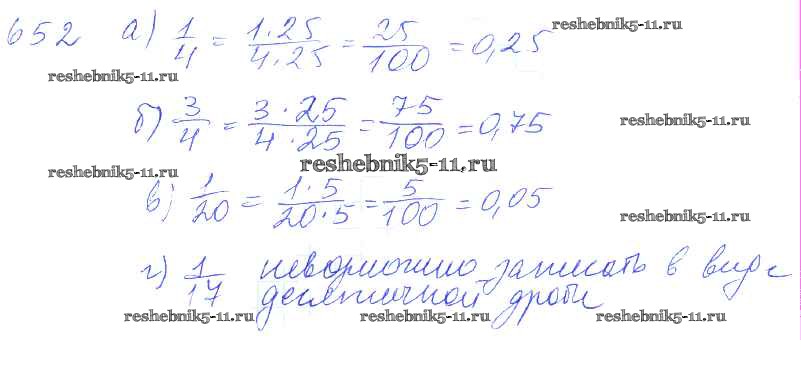 652 а) 1/4 = 1·25/4·25 = 25/100 = 0,25
reshebnik5-11.ru
reshebnik5-11.ru
б) 3/4 = 3·25/4·25 = 75/100 = 0,75
reshebnik5-11.ru
reshebnik5-11.ru
reshebnik5-11.ru
в) 1/20 = 1·5/20·5 = 5/100 = 0,05
reshebnik5-11.ru
г) 1/17 невозможно записать в виде
десятичной дроби
reshebnik5-11.ru
reshebnik5-11.ru
reshebnik5-11.ru